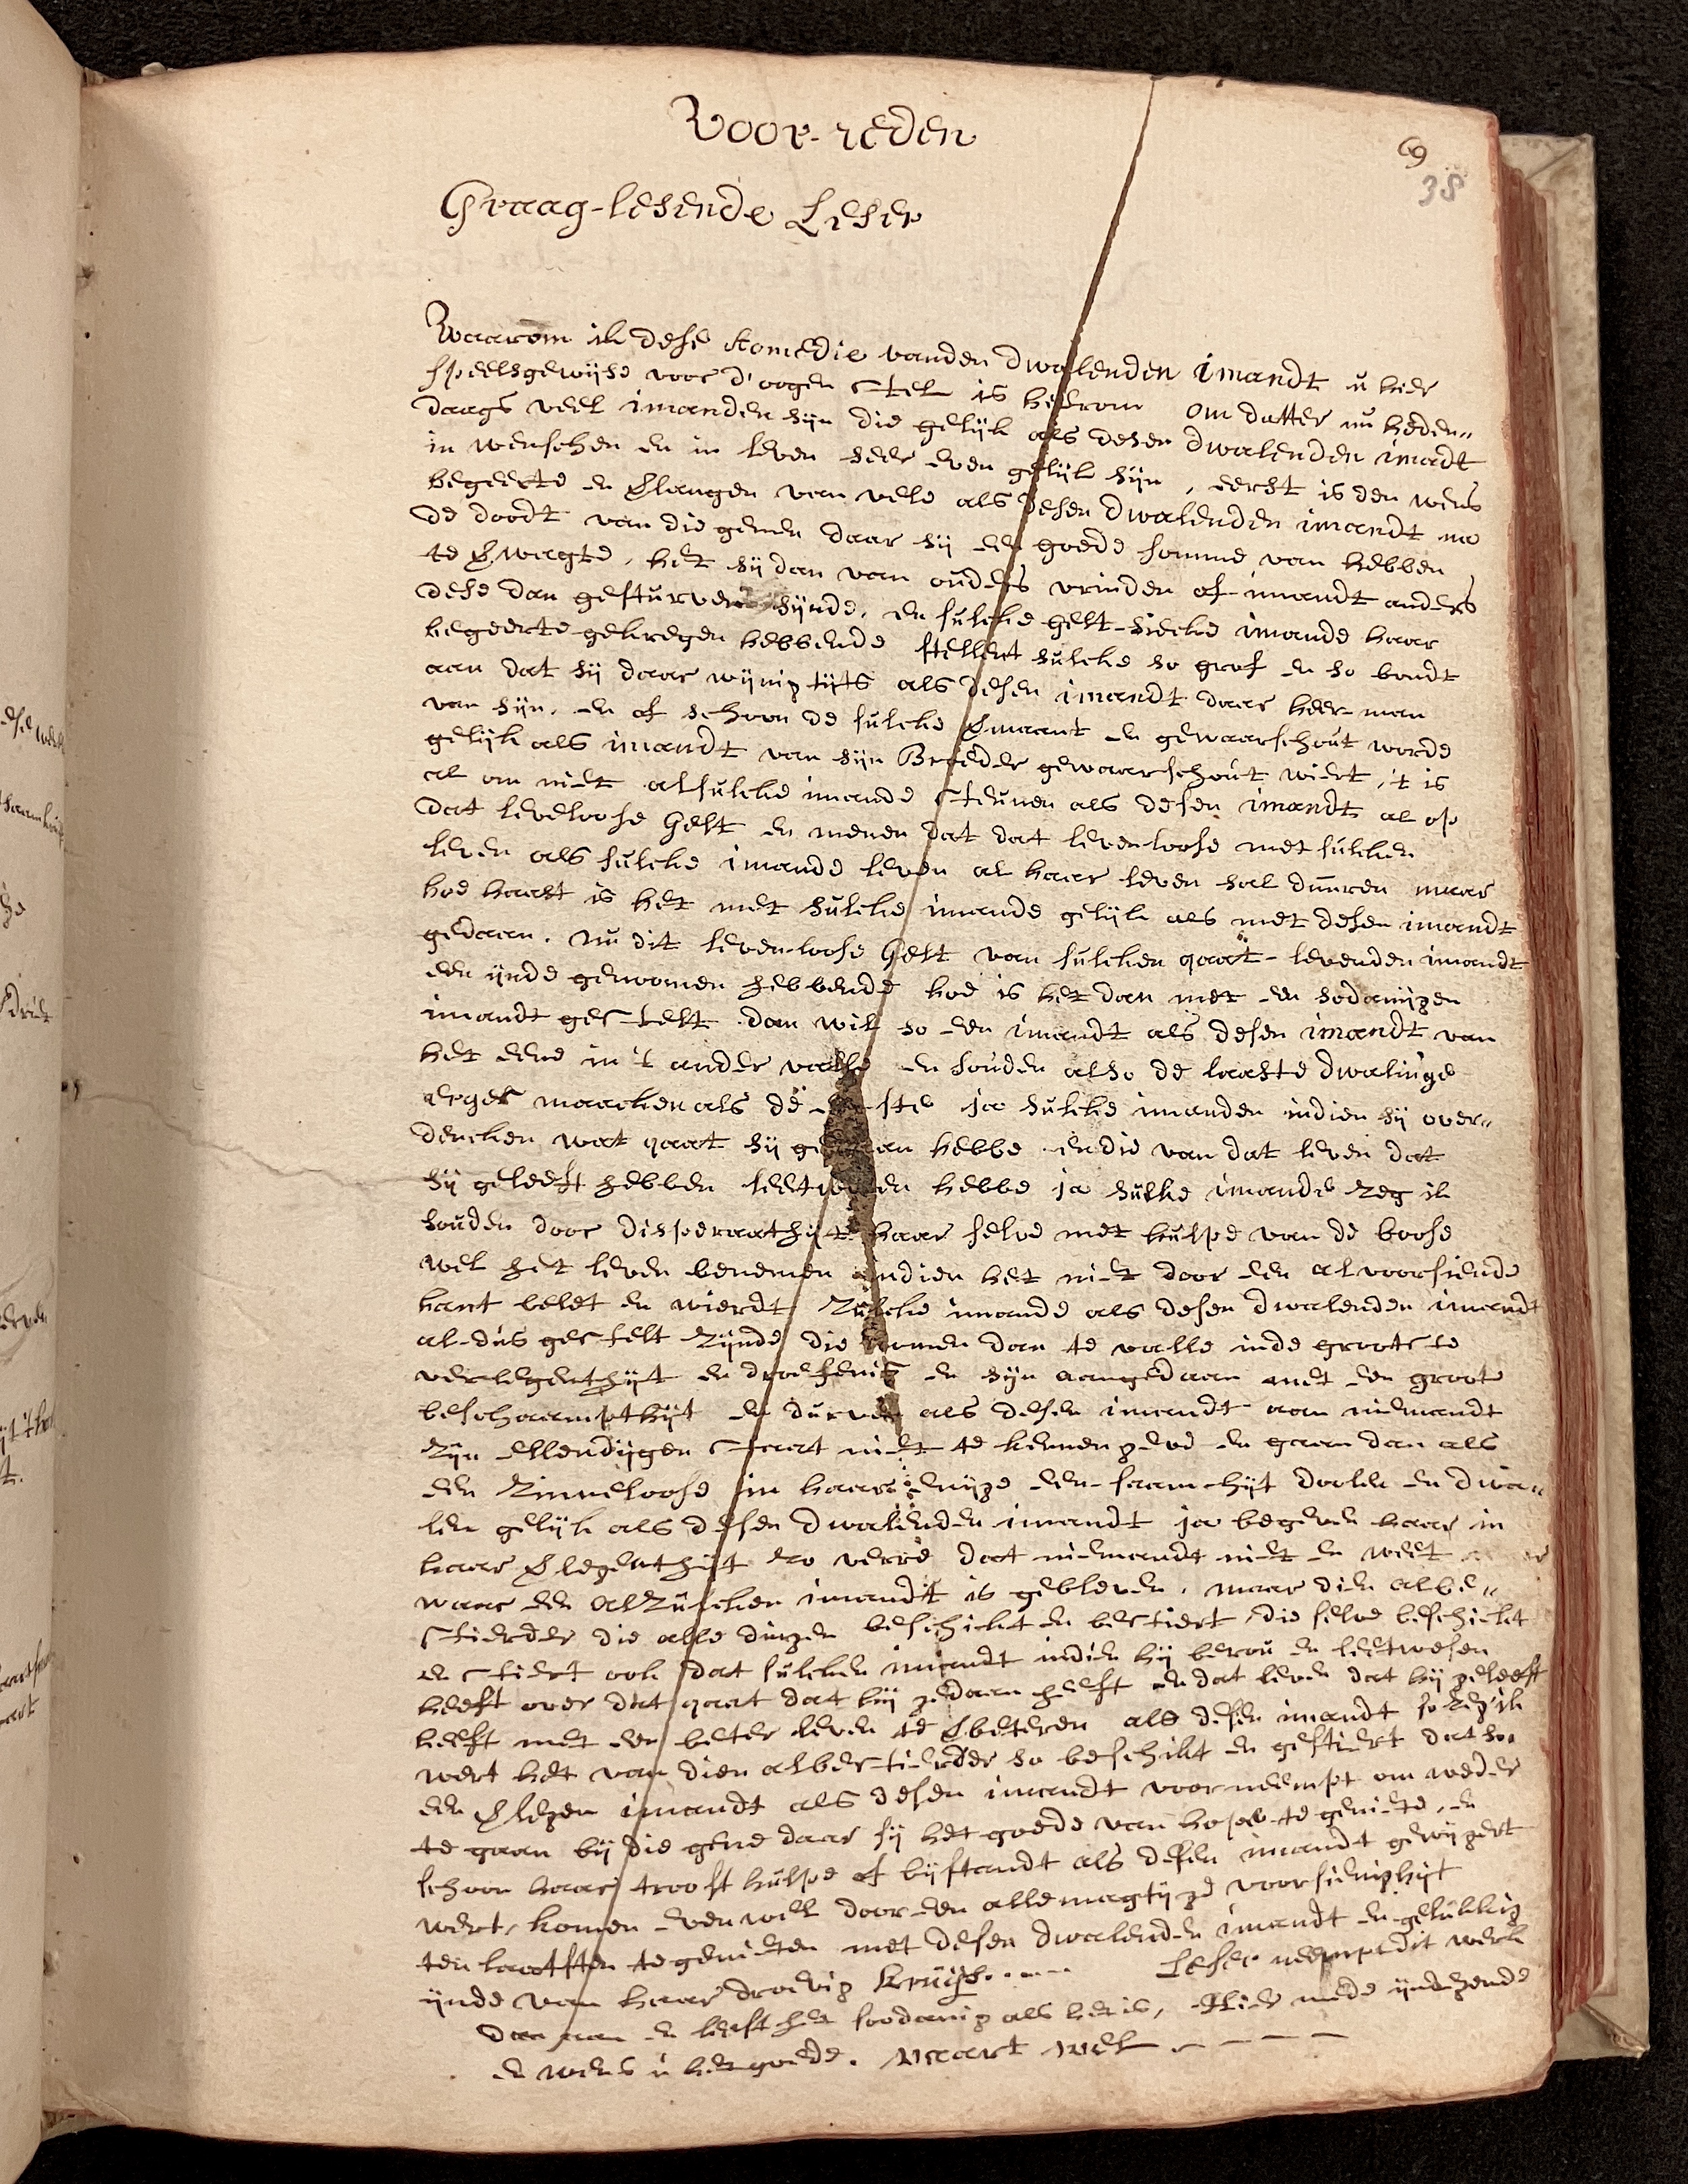 Voor-reden
69
38
Graag-lesende Leser
Waarom ik dese komedie vanden dwalenden imandt u hier
speelsgewijse voor d'oogen stel is hierom om datter nu heden„
daags veel imanden sijn die gelijk als desen dwalenden imadt
in wenschen en in leven seer even gelijk sijn, eerst is den wens
begeerte en vlangen van vele als desen dwalenden imandt na
de doodt van die genen daar sij een goede somme van hebben
te vwagte, het sij dan van ouders vrinden of imandt anders
dese dan gesturven sijnde, en sulcke gelt-siecke imande haar
begeerte gekregen hebbende stellent sulcke so grof en so bondt
aan dat sij daar wijnig tijts als desen imandt daar heer-man
van sijn. en of schoon de sulcke vmaant en gewaarschout worde
gelijk als imandt van sijn Broeder gewaarschout wiert, 't is
al om niet alsulcke imande steunen als desen imandt al op
dat leveloose Gelt en menen dat dat levenloose met sulcken
leven als sulcke imande leven al haar leven sal duuren maar
hoe haast is het met sulcke imande gelijk als met desen imandt
gedaan. nu dit leven-loose Gelt van sulcken qaat-levenden imandt
een ijnde genomen hebbende hoe is het dan met een sodanijgen
imandt gestelt dan wil so een imandt als desen imandt van
het eene in 't ander valle en souden also de laaste dwalinge
erger maacken als de eerste ja sulcke imanden indien sij over„
dencken wat qaat sij gedaan hebbe endie van dat leven dat
sij geleeft hebben leetwesen hebbe ja sulke imande zeg ik
souden door disperaathijt haar selve met hulpe van de boose
wel het leven benemen indien het niet door een alvoorsiende
hant belet en wierdt Zulcke imande als desen dwalenden imandt
al-dus gestelt zijnde die komen dan te valle inde grootste
verlegenthijt en droefenis en sijn aangedaan met een groote
beschaampthijt en durven als desen imandt aan niemandt
zijn ellendijgen staat niet te kennen geve en gaan dan als
een Zinneloose in haar enijge een-saam-hijt doolen en dwa„
len gelijk als desen dwalenden imandt ja begeven haar in
haar vlegenthijt zo verre dat niemandt niet en weet
waar een alzulcken imandt is gebleven. maar dien albe„
stierder die alle dingen beschickt en bestiert, die selve beschickt
en stiert ook dat sulcken imandt indien hij berou en leetwesen
heeft over dat qaat dat hij gedaan heeft en dat leven dat hij geleeft
heeft met een beter leven te vbeteren als desen imandt so zeg ik
wert het van dien albestierder so beschikt en gestiert dat so
een vlegen imandt als desen imandt voorneempt om weder
te gaan bij die gene daar sij het goede van hopen te geniete, en
schoon haar troost hulpe of bijstandt als desen imandt gewijgert
wert, komen even wel door een allemagtijge voorsienighijt
ten laatsten tegenieten met desen dwalenden imandt en gelukkig
ijnde van haar droevig kruijs. Leser neempt dit werk
dan aan en leest het soodanig als het is, Hier mede ijndigende
en wens u het goede. vaart wel